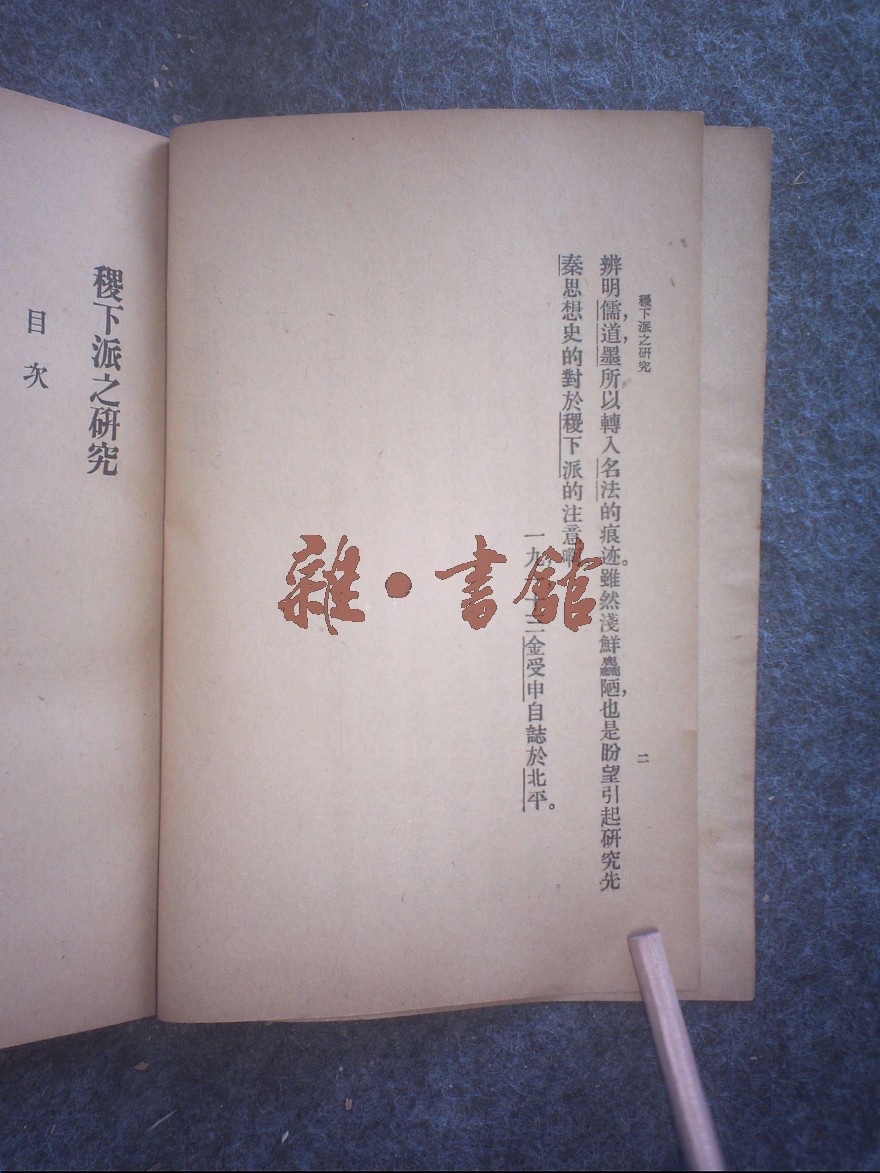 稷下派之研究
二
辨明儒,道,墨所以轉入名法的痕迹。雖然淺鮮麤陋,也是盼望引起研究先
秦思想史的對於稷下派的注意
一九 三金受申自誌於北平。
稷下派之研究
目次
雜·書館